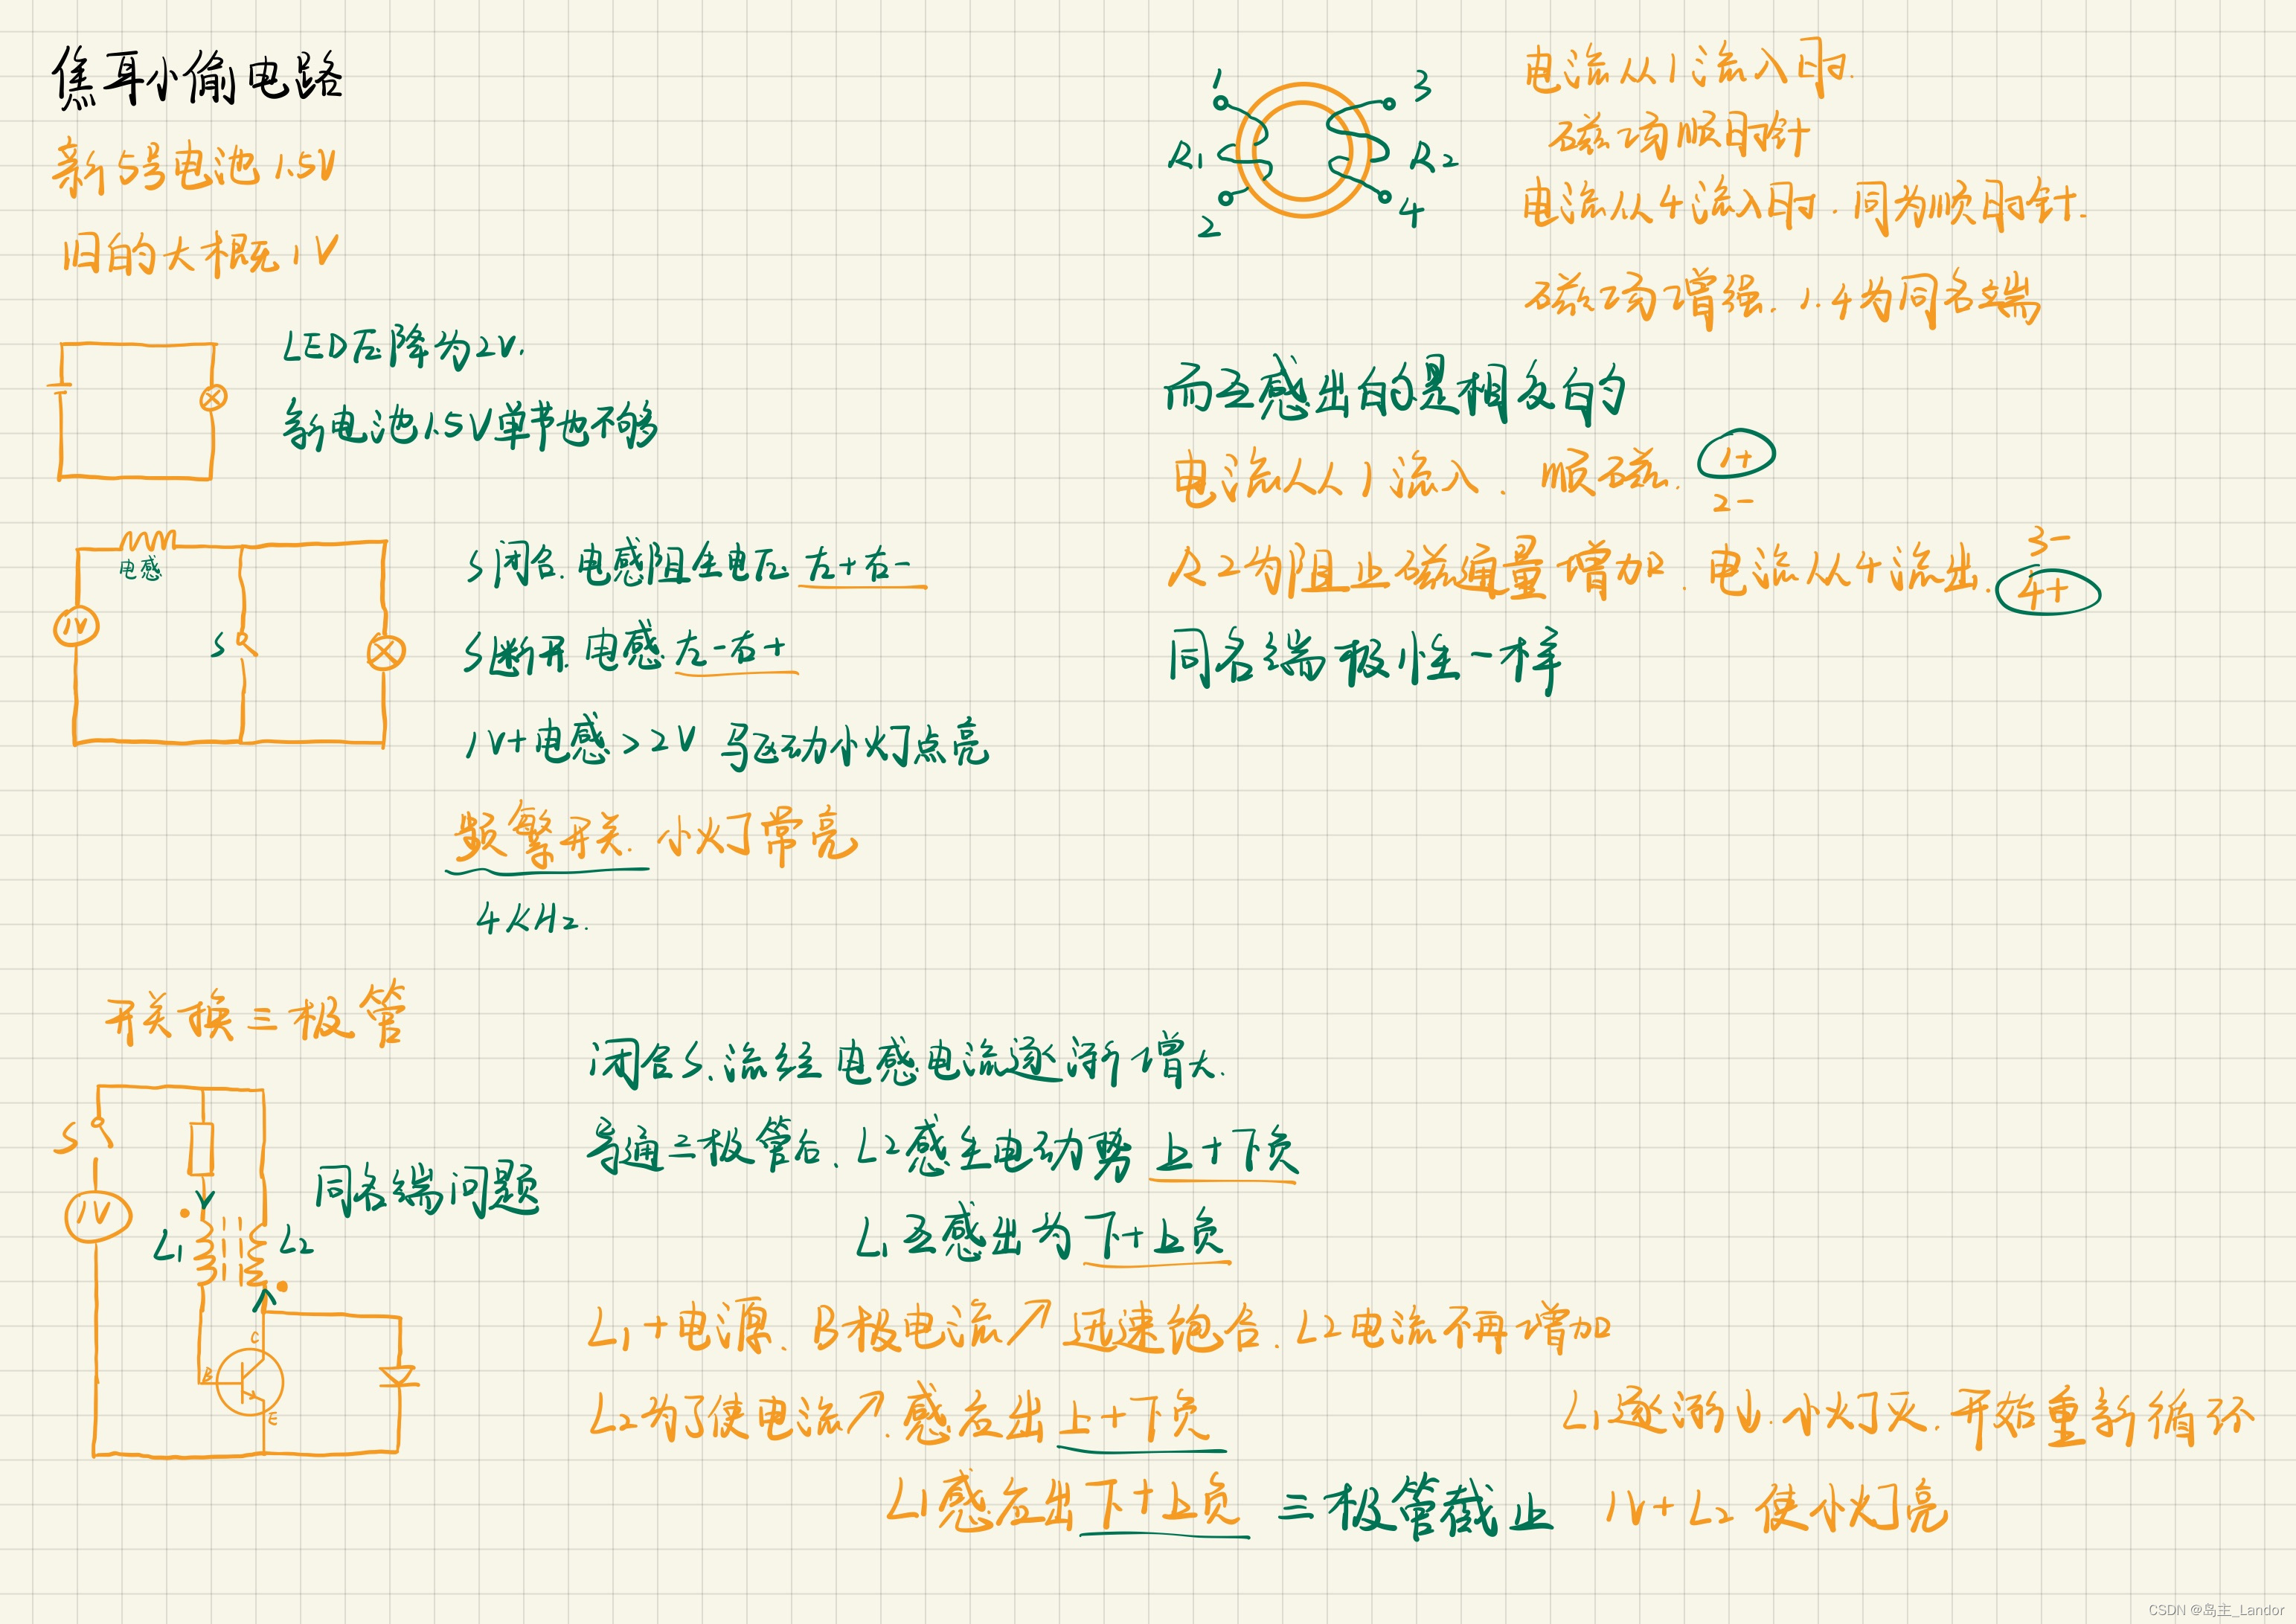 焦耳小偷电路
新5号电池1.5V
旧的大概1V
LED压降为2V.
新电池1.5V单节也不够
电感
1V
S
S闭合.电感阻生电压 左+右-
S断开.电感.左-右+
1V+电感>2V 驱动小灯点亮
频繁开关.小灯常亮
4KHz.
1
3
R1
R2
2
4
电流从1流入时.
磁场顺时针
电流从4流入时.同为顺时针.
磁场增强.1.4为同名端
而互感出的是相反的
电流从1流入.顺磁.
1+
2-
R2为阻止磁通量增加.电流从4流出.
3-
4+
同名端极性一样
开关换三极管
S
1V
L1
L2
同名端问题
C
B
E
闭合S.流经电感电流逐渐增大.
导通三极管后.L2感生电动势 上+下负
L1互感出为下+上负
L1+电源.B极电流↗迅速饱合.L2电流不再增加
L2为了使电流↗.感应出上+下负
L1感应出下+上负 三极管截止 1V+L2 使小灯亮
L1逐渐↓.小灯灭.开始重新循环
CSDN @岛主_Landor